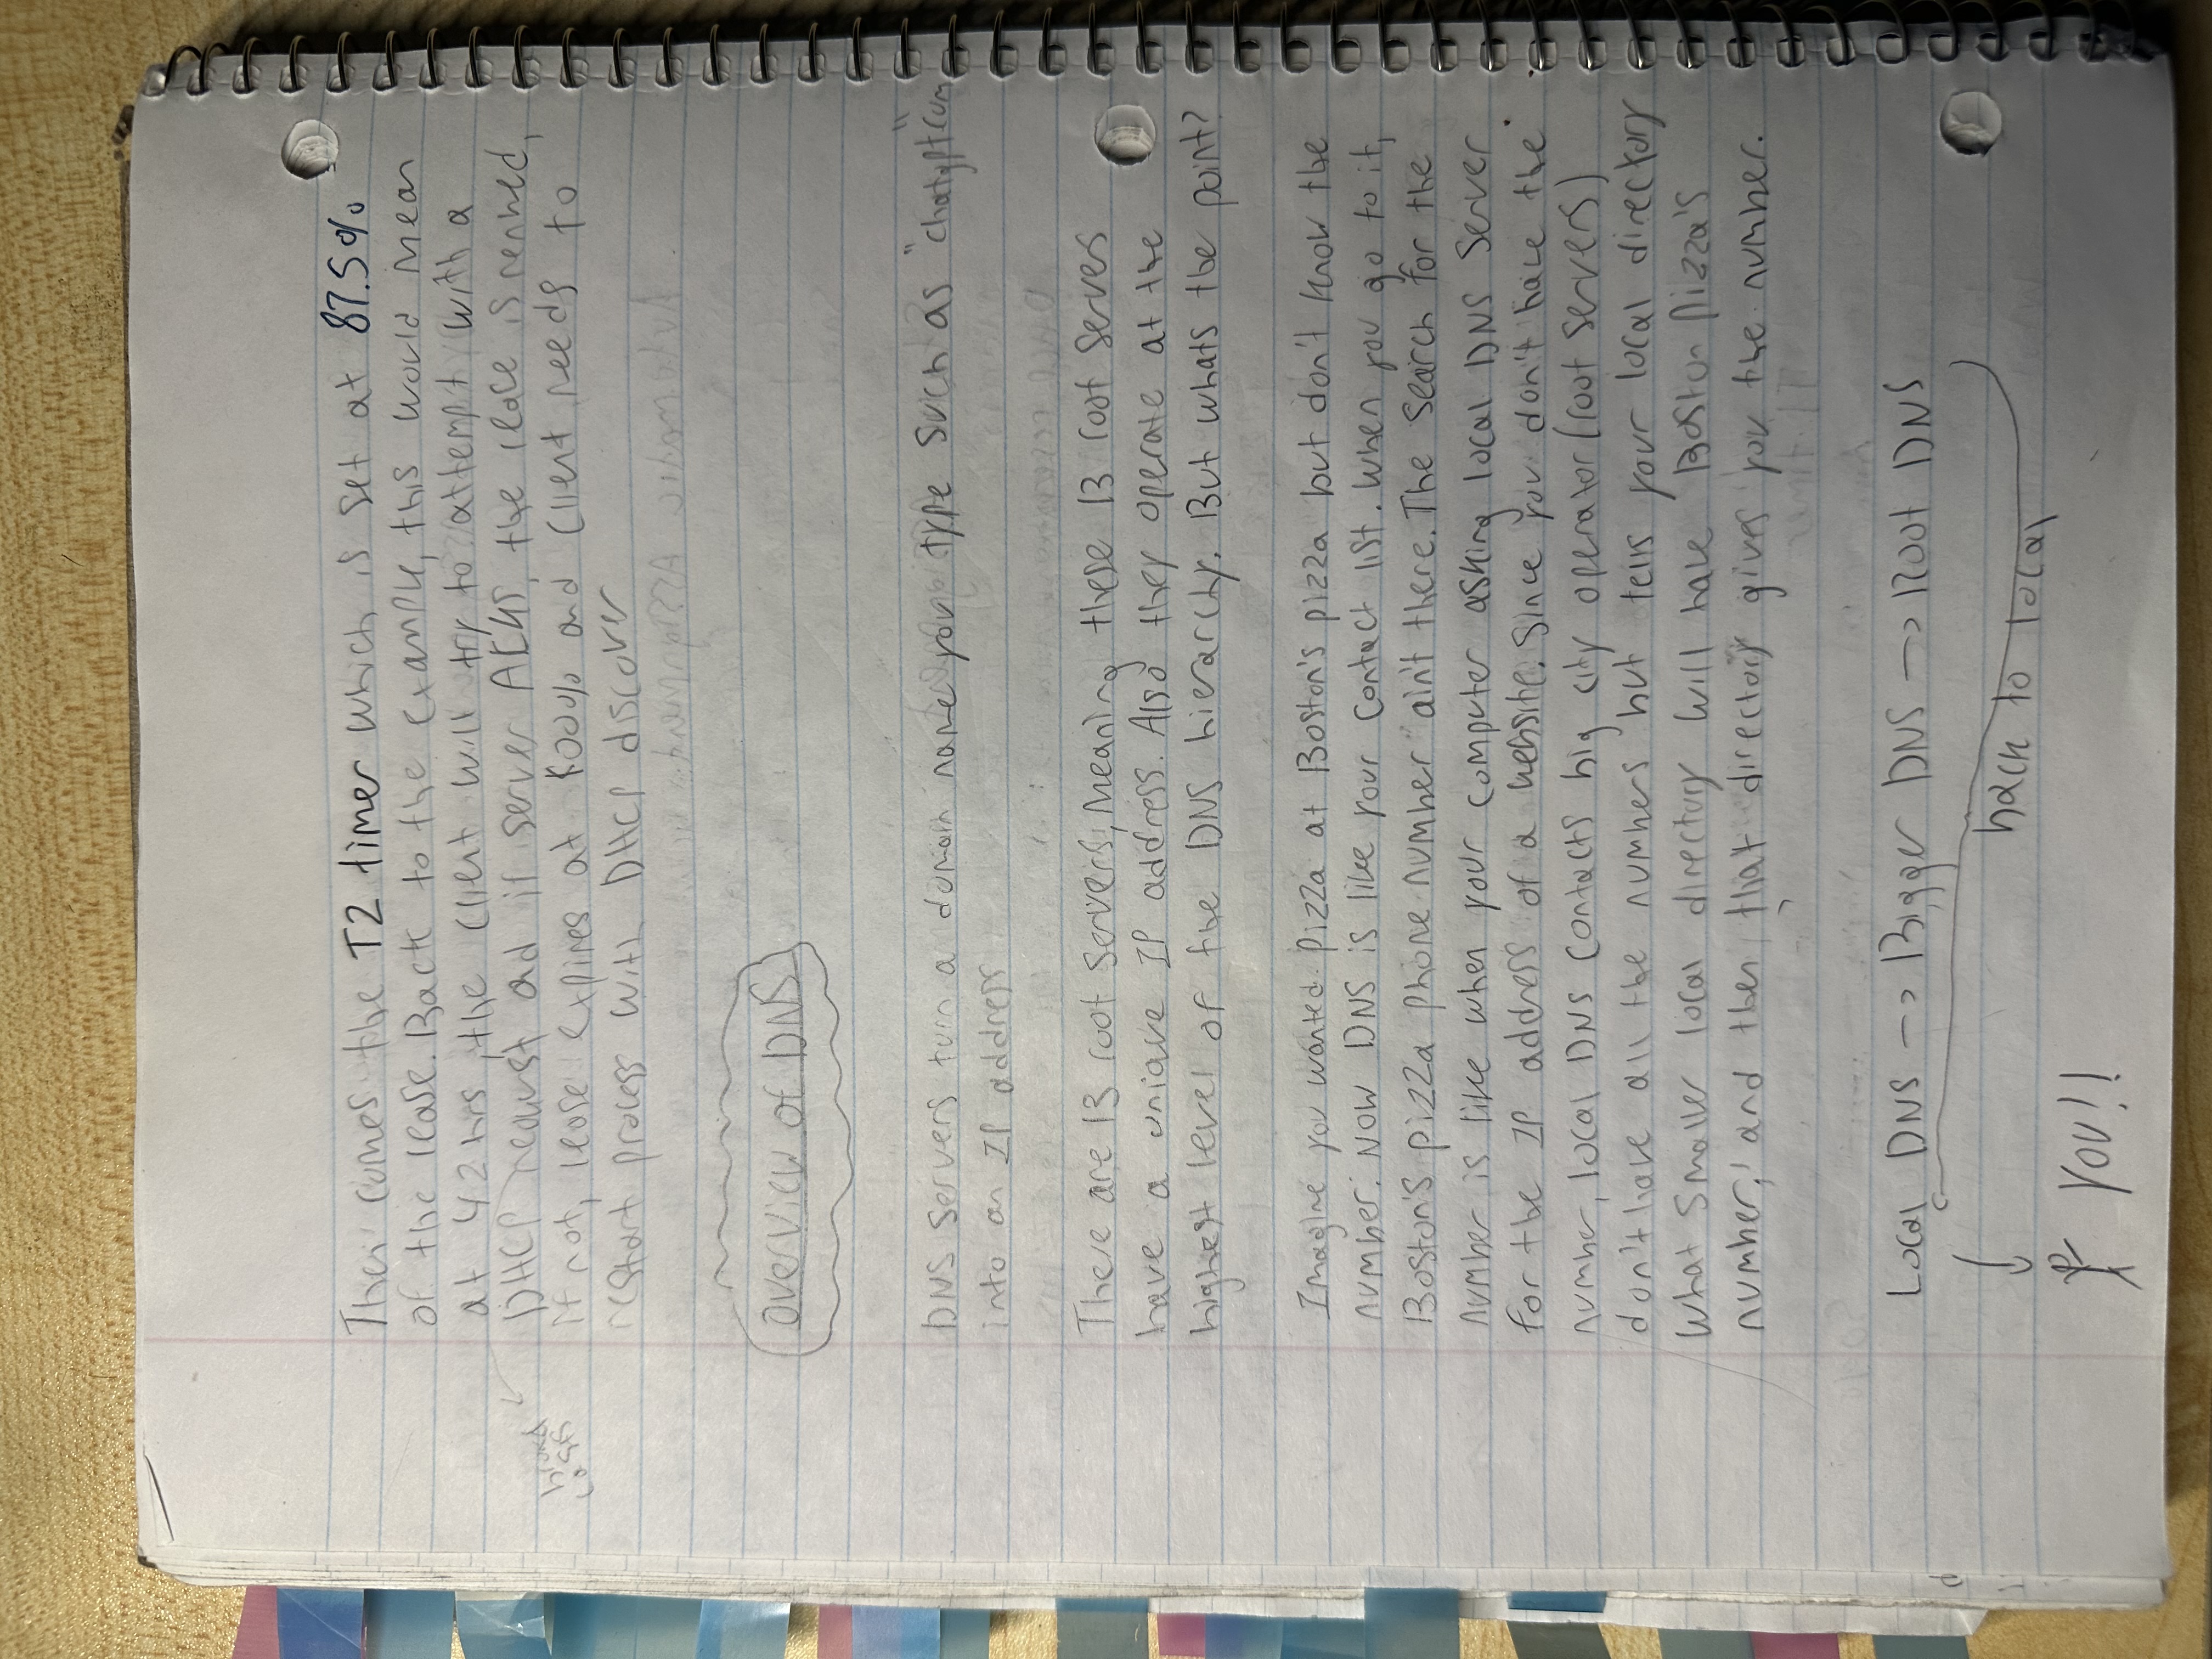 Then comes the T2 timer which is set at 87.5%
of the lease. Back to the example, this would mean
at 42 hrs, the client will try to attempt with a
broad
casts
DHCP request and if server ACKs, the lease is renewed,
if not, lease expires at 100% and client needs to
restart process with DHCP discover
Overview of DNS
DNS servers turn a domain name you type such as "chatgpt.com"
into an IP address
There are 13 root servers, meaning these 13 root servers
have a unique IP address. Also they operate at the
highest level of the DNS hierarchy. But whats the point?
Imagine you wanted pizza at Boston's pizza but don't know the
number. Now DNS is like your contact list. When you go to it,
Boston's pizza phone number ain't there. The search for the
number is like when your computer asking local DNS server
for the IP address of a website. Since you don't have the
number, local DNS contacts big city operator (root servers)
don't have all the numbers but tells your local directory
what smaller local directory will have Boston Pizza's
number, and then that directory gives you the number.
Local DNS -> Bigger DNS -> Root DNS
back to local
YOU!!